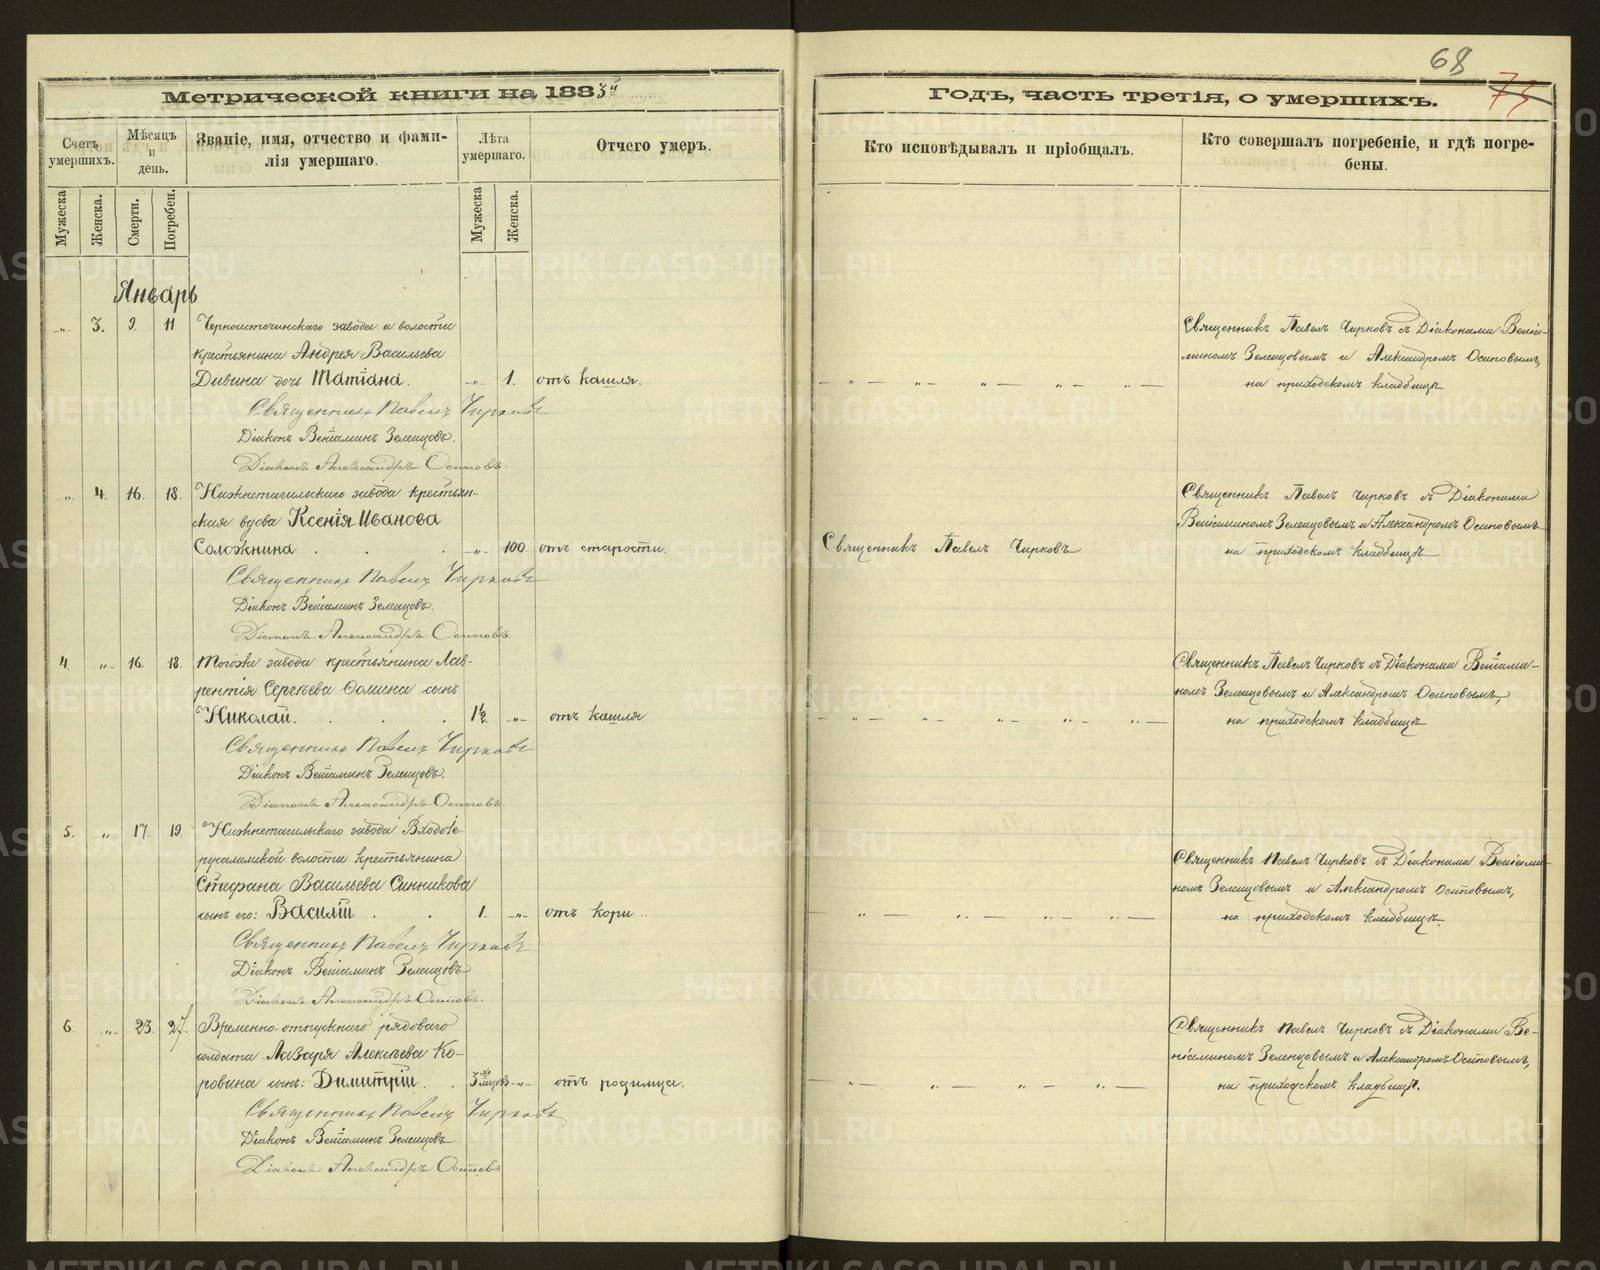 68
73
Метрической книги на 1883й
Годъ, часть третія, о умершихъ.
Счетъ умершихъ.
Мѣсяцъ и день.
Званіе, имя, отчество и фами-
лія умершаго.
Лѣта умершаго.
Отчего умеръ.
Кто исповѣдывалъ и пріобщалъ.
Кто совершалъ погребеніе, и гдѣ погре-
бены.
Мужеска
Женска.
Смерти.
Погребен.
Мужеска
Женска.
Январь
„ 3. 9. 11 Черноисточинскаго завода и волости
крестьянина Андрея Васильева
Дивина дочь Татіана. -„- 1. отъ кашля.
Священникъ Павелъ Чирковъ
Діаконъ Веніаминъ Зеленцовъ.
Діаконъ Александръ Осиповъ.
Священникъ Павелъ Чирковъ съ Діаконами Веніа-
миномъ Зеленцовымъ и Александромъ Осиповымъ,
на приходскомъ кладбищѣ
„ 4. 16. 18. Нижнетагильскаго завода крестьян-
ская вдова Ксенія Иванова
Соложнина . . . -„- 100. отъ старости.
Священникъ Павелъ Чирковъ
Священникъ Павелъ Чирковъ
Діаконъ Веніаминъ Зеленцовъ.
Діаконъ Александръ Осиповъ.
Священникъ Павелъ Чирковъ съ Діаконами
Веніаминомъ Зеленцовымъ и Александромъ Осиповымъ
на приходскомъ кладбищѣ
4. „ 16. 18. Тогоже завода крестьянина Лав-
рентія Сергѣева Фомина сынъ
Николай. . . . 1½. -„- отъ кашля
Священникъ Павелъ Чирковъ
Діаконъ Веніаминъ Зеленцовъ.
Діаконъ Александръ Осиповъ.
Священникъ Павелъ Чирковъ съ Діаконами Веніами-
номъ Зеленцовымъ и Александромъ Осиповымъ,
на приходскомъ кладбищѣ
5. „ 17. 19 Нижнетагильскаго завода Входоіе-
русалимской волости крестьянина
Стефана Васильева Синникова
сынъ его: Василій . . 1. -„- отъ кори.
Священникъ Павелъ Чирковъ
Діаконъ Веніаминъ Зеленцовъ
Діаконъ Александръ Осиповъ.
Священникъ Павелъ Чирковъ съ Діаконами Веніами-
номъ Зеленцовымъ и Александромъ Осиповымъ,
на приходскомъ кладбищѣ.
6. „ 23. 27. Временно-отпускнаго рядоваго
солдата Лазаря Алексѣева Ко-
ровина сынъ: Димитрій . . 3 мѣсяцовъ -„- отъ родимца.
Священникъ Павелъ Чирковъ
Діаконъ Веніаминъ Зеленцовъ
Діаконъ Александръ Осиповъ
Священникъ Павелъ Чирковъ съ Діаконами Ве-
ніаминомъ Зеленцовымъ и Александромъ Осиповымъ,
на приходскомъ кладбищѣ.
METRIKI.GASO-URAL.RU